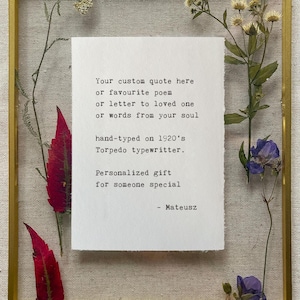 Your custom quote here
or favourite poem
or letter to loved one
or words from your soul
hand-typed on 1920's
Torpedo typewriter.
Personalized gift
for someone special
- Mateusz